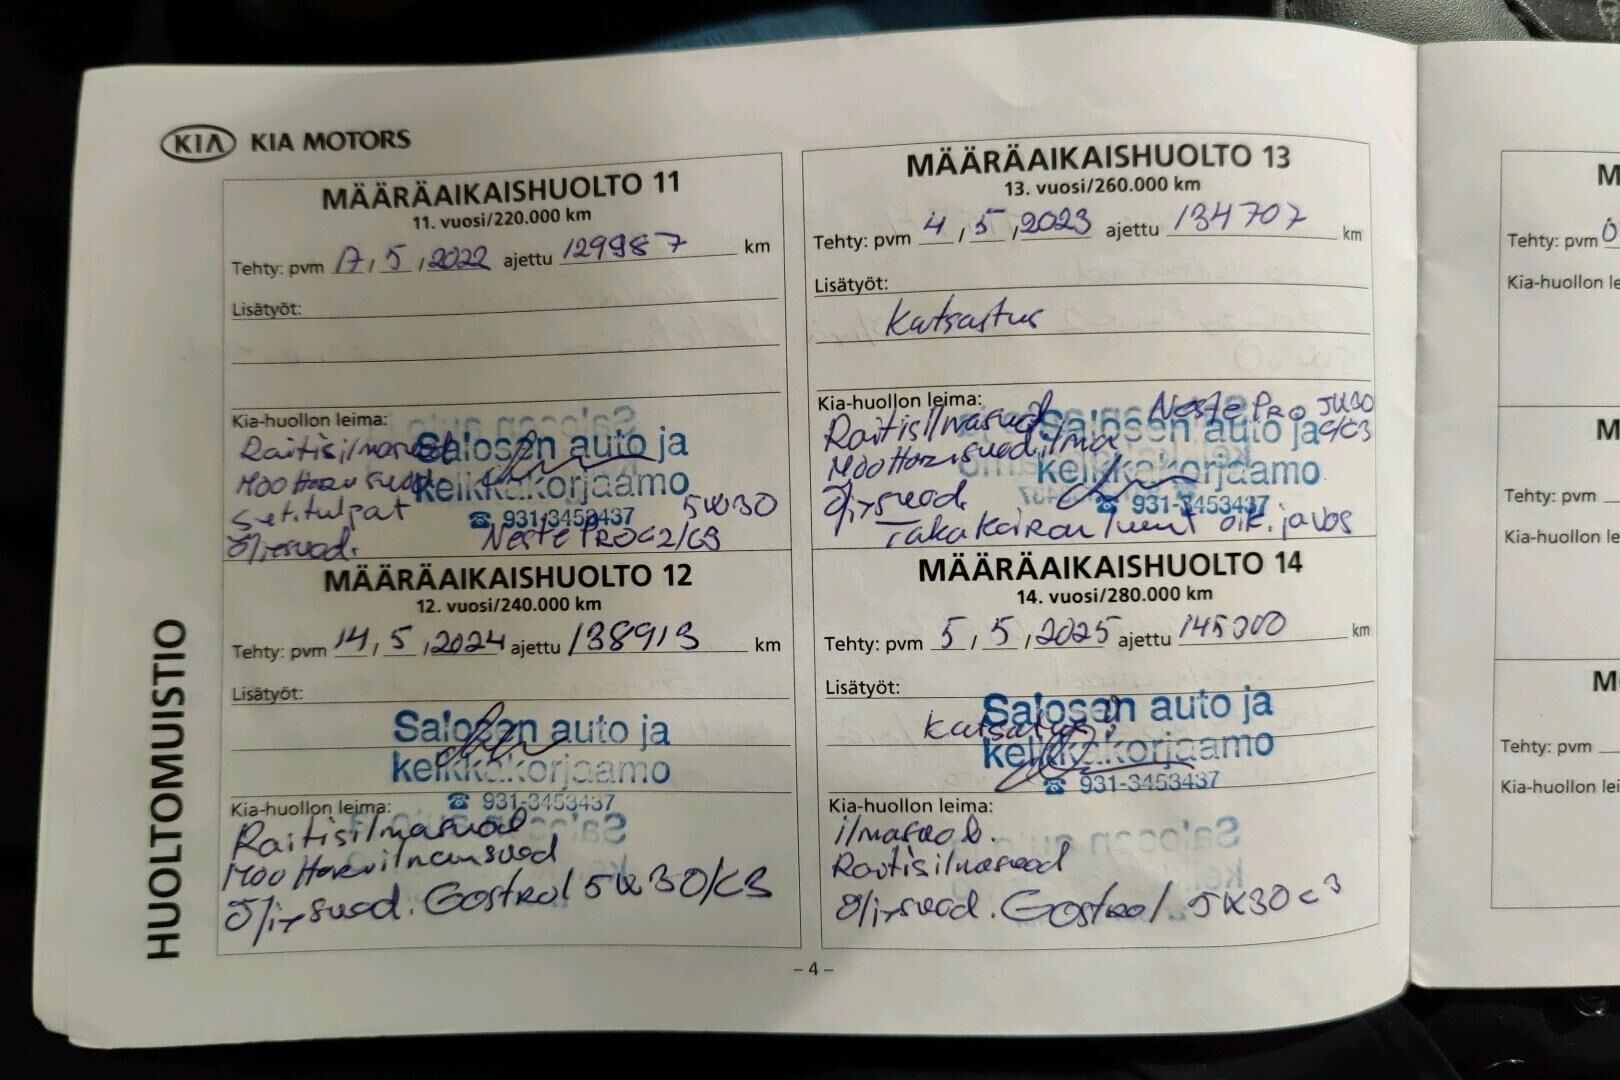 KIA KIA MOTORS
HUOLTOMUISTIO
MÄÄRÄAIKAISHUOLTO 11
11. vuosi/220.000 km
Tehty: pvm 17, 5, 2022 ajettu 129987 km
Lisätyöt:
Kia-huollon leima:
Salosen auto ja
kelkkakorjaamo
☎ 931-3453437
Raitisilmasuod
Moottorin suod
Sytitulpat 5W30
Öljysuod. Neste PRO C2/C3
MÄÄRÄAIKAISHUOLTO 12
12. vuosi/240.000 km
Tehty: pvm 14, 5, 2024 ajettu 138913 km
Lisätyöt:
Salosen auto ja
kelkkakorjaamo
☎ 931-3453437
Kia-huollon leima:
Raitisilmasuod
Moottorin ilmansuod
Öljysuod. Castrol 5W30/C3
MÄÄRÄAIKAISHUOLTO 13
13. vuosi/260.000 km
Tehty: pvm 4, 5, 2023 ajettu 134707 km
Lisätyöt:
Katsastus
Kia-huollon leima:
Salosen auto ja
kelkkakorjaamo
☎ 931-3453437
Raitisilmasuod Neste PRO 5W30
Moottorinsuod, ilma C3
Öljysuod.
Takakoiran luent oik. ja vas
MÄÄRÄAIKAISHUOLTO 14
14. vuosi/280.000 km
Tehty: pvm 5, 5, 2025 ajettu 145300 km
Lisätyöt:
Katsastus
Salosen auto ja
kelkkakorjaamo
☎ 931-3453437
Kia-huollon leima:
ilmasuod.
Raitisilmasuod
Öljysuod. Castrol 5W30 C3
– 4 –
Tehty: pvm
Kia-huollon le
Tehty: pvm
Kia-huollon le
Tehty: pvm
Kia-huollon lei